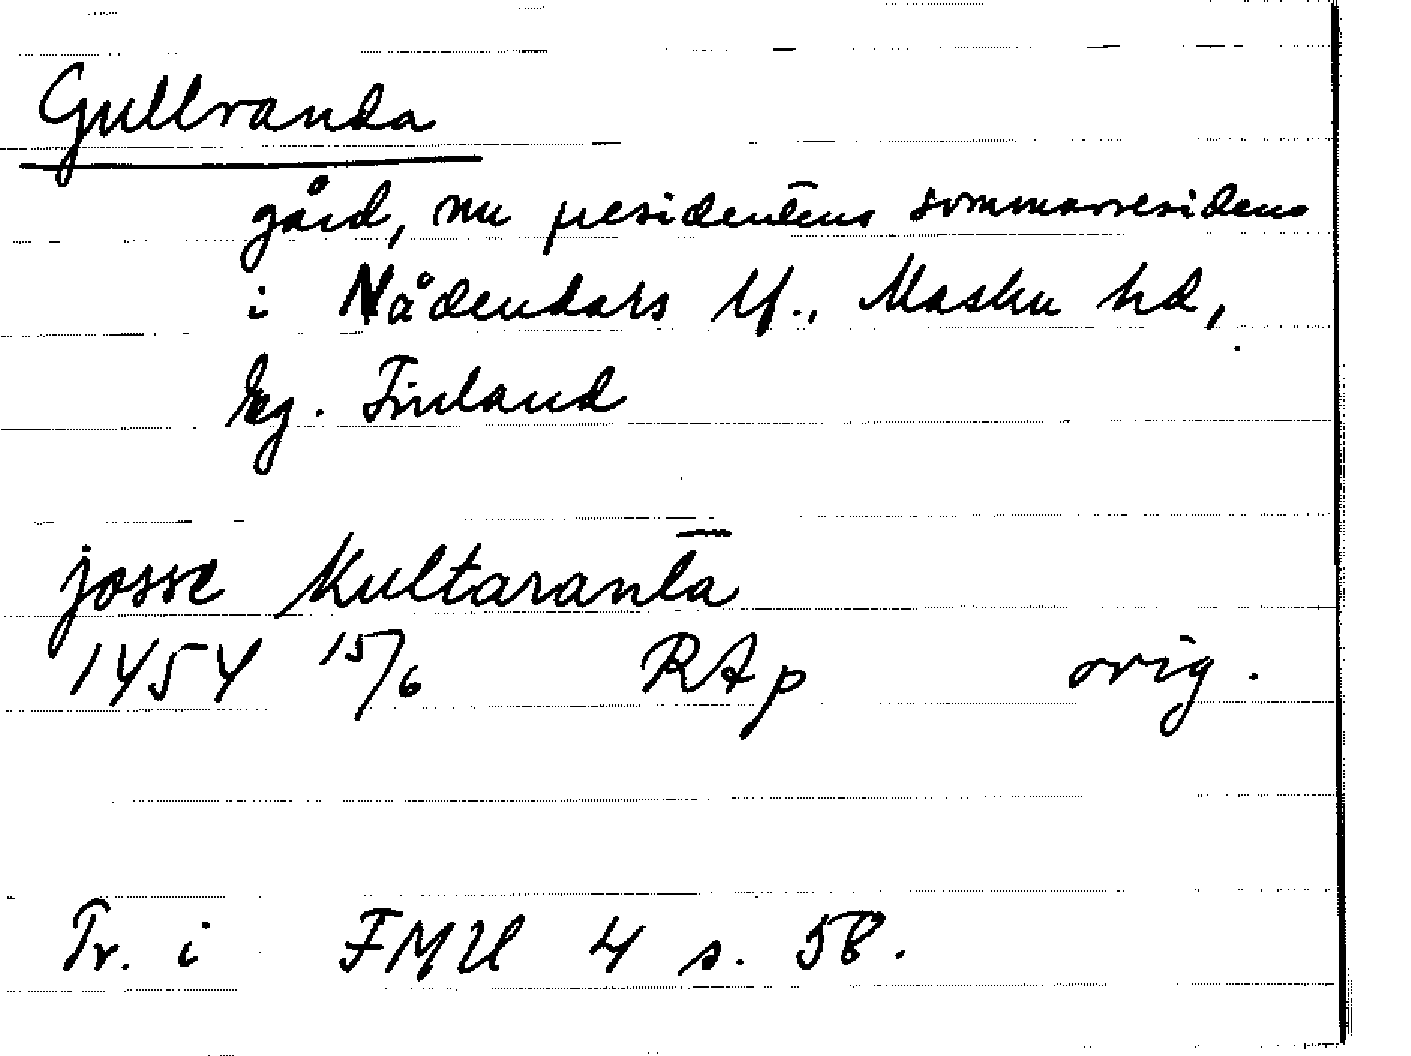 Gullranda
gård, nu presidentens sommarresidens
i Nådendals lf., Masku hd,
Eg. Finland
josse Kultaranta
1454 15/6 RAp orig.
Tr. i FMU 4 s. 58.